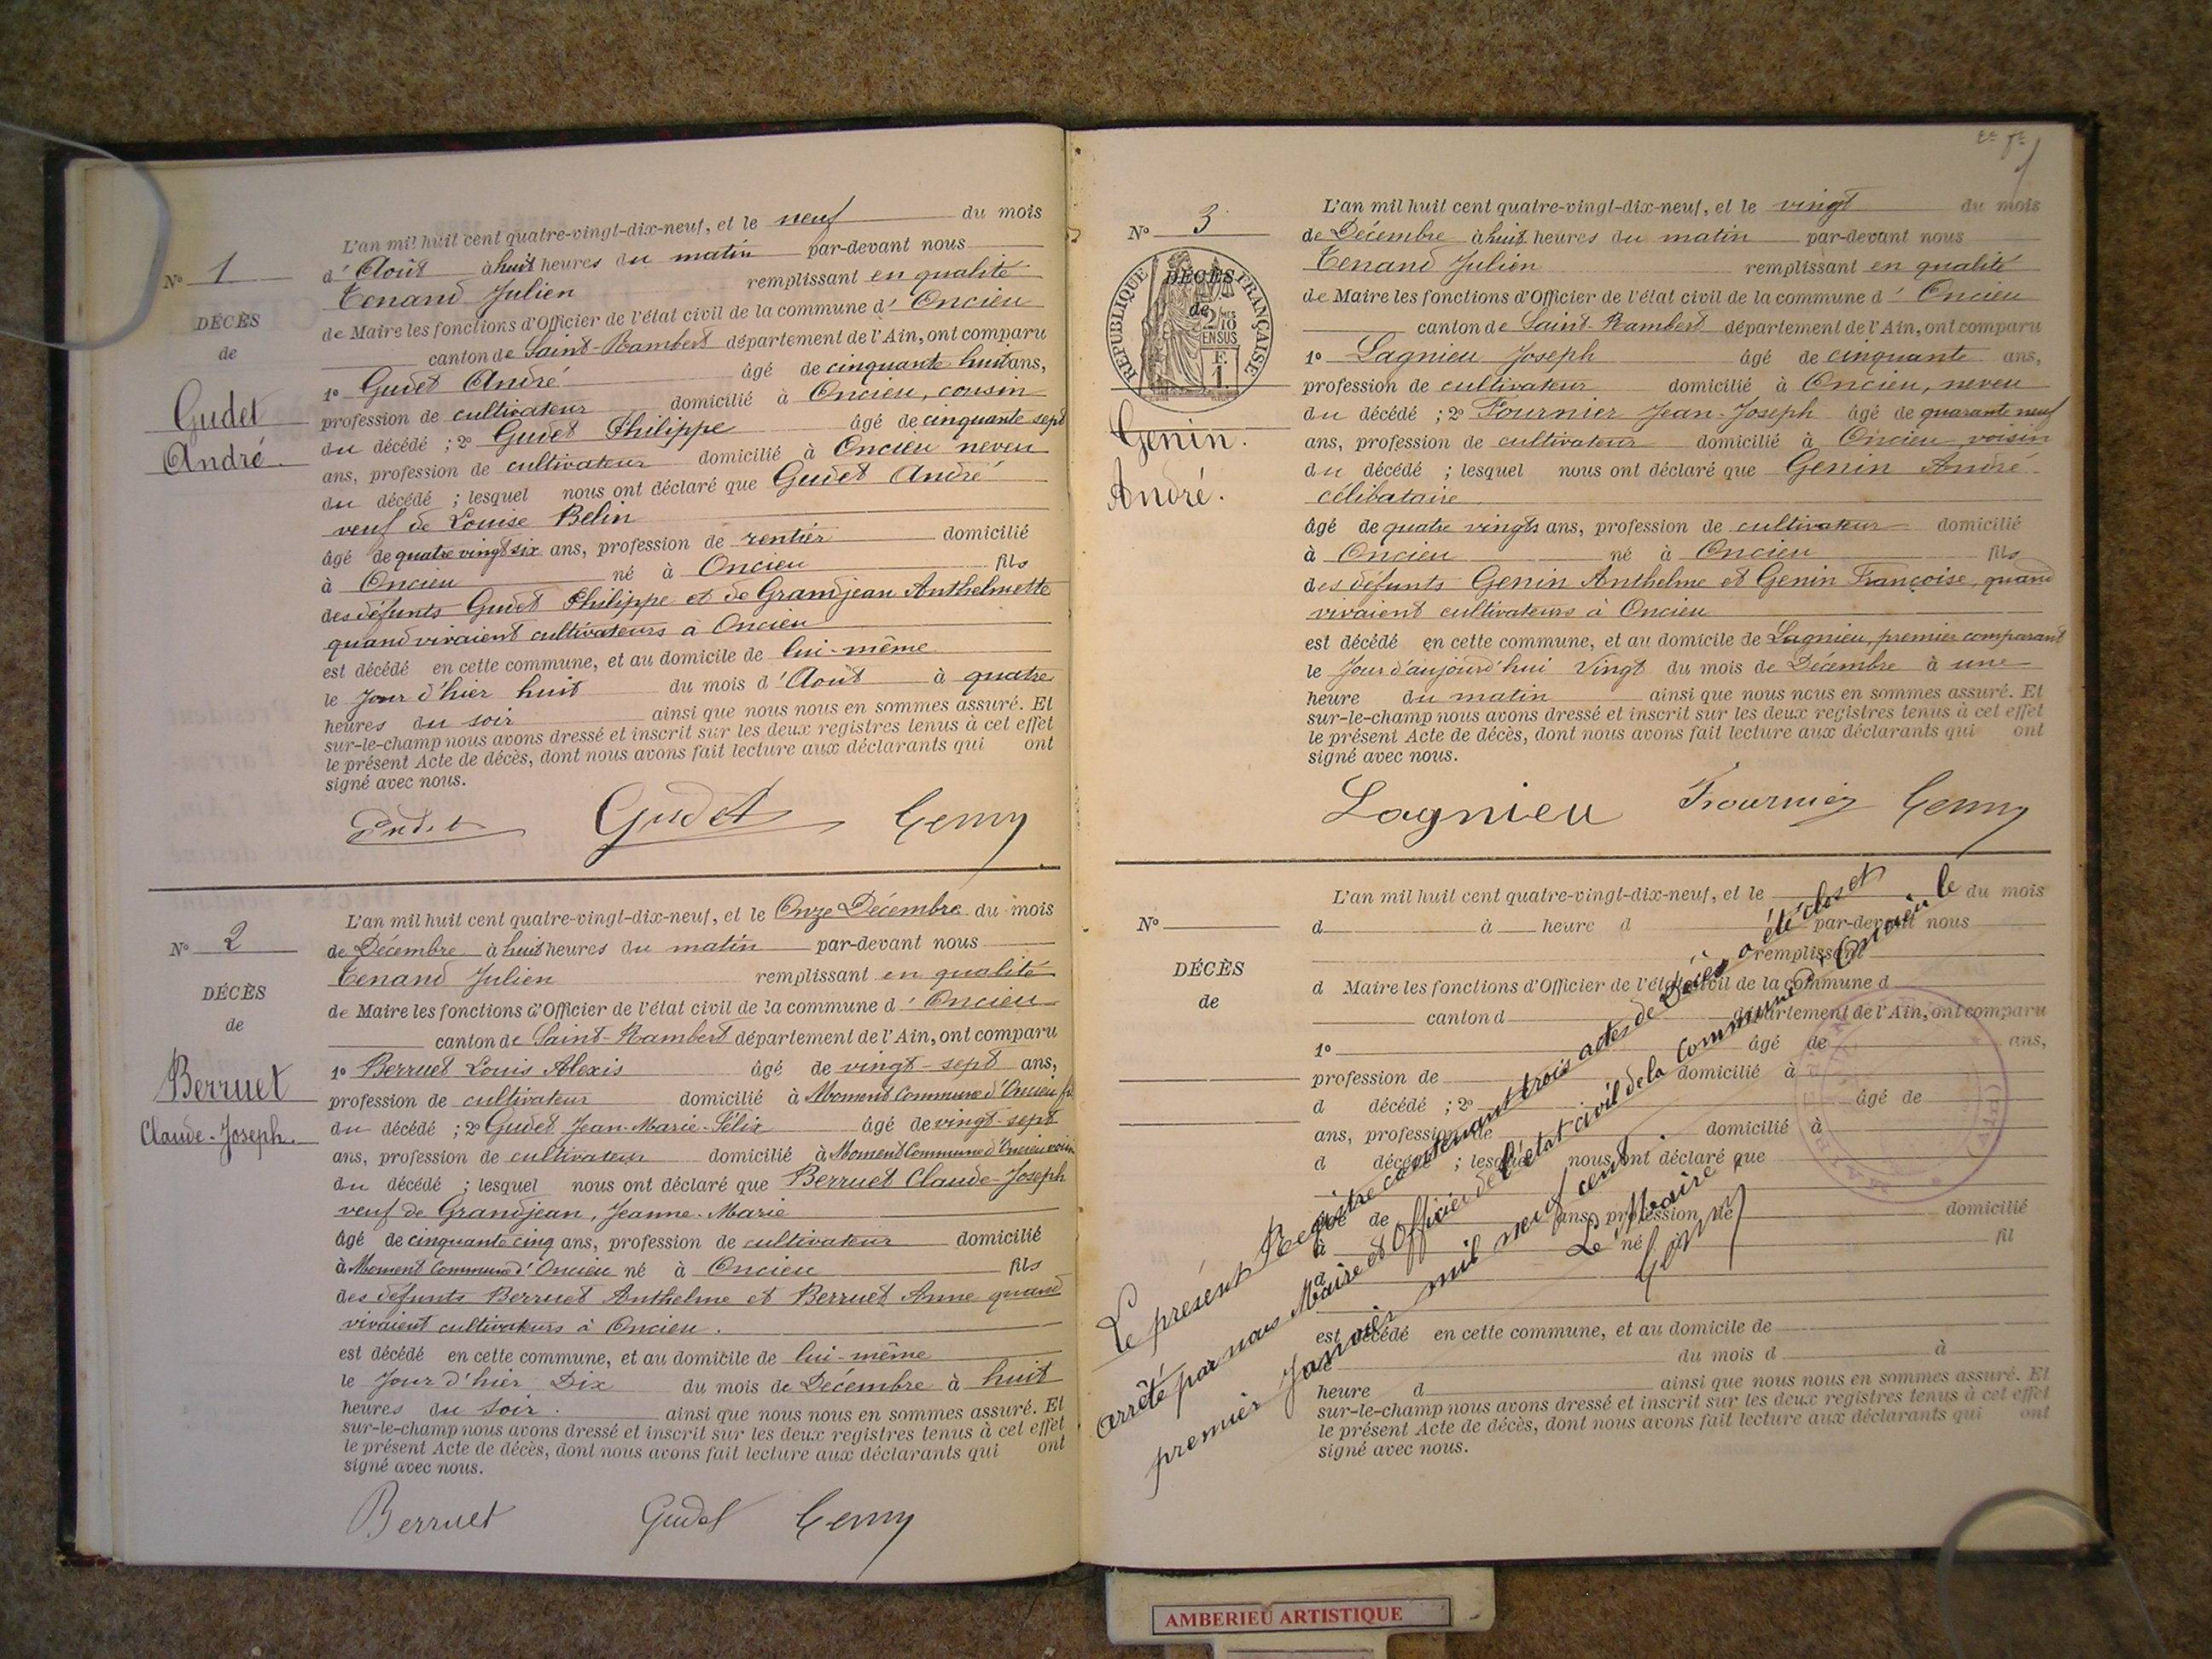 N° 1
DÉCÈS
de
Gudet
André.
L'an mil huit cent quatre-vingt-dix-neuf, et le neuf du mois
d'Août à huit heures du matin par-devant nous
Tenand Julien remplissant en qualité
de Maire les fonctions d'Officier de l'état civil de la commune d'Oncieu
canton de Saint-Rambert département de l'Ain, ont comparu
1° Gudet André âgé de cinquante huit ans,
profession de cultivateur domicilié à Oncieu, cousin
du décédé ; 2° Gudet Philippe âgé de cinquante sept
ans, profession de cultivateur domicilié à Oncieu neveu
du décédé ; lesquel nous ont déclaré que Gudet André
veuf de Louise Belin
âgé de quatre vingt six ans, profession de rentier domicilié
à Oncieu né à Oncieu fils
des défunts Gudet Philippe et de Grandjean Anthelmette
quand vivaient cultivateurs à Oncieu
est décédé en cette commune, et au domicile de lui-même
le jour d'hier huit du mois d'Août à quatre
heures du soir ainsi que nous nous en sommes assuré. Et
sur-le-champ nous avons dressé et inscrit sur les deux registres tenus à cet effet
le présent Acte de décès, dont nous avons fait lecture aux déclarants qui ont
signé avec nous.
Gudet Gudet
N° 2
DÉCÈS
de
Berruet
Claude-Joseph.
L'an mil huit cent quatre-vingt-dix-neuf, et le Onze Décembre du mois
de Décembre à huit heures du matin par-devant nous
Tenand Julien remplissant en qualité
de Maire les fonctions d'Officier de l'état civil de la commune d'Oncieu
canton de Saint-Rambert département de l'Ain, ont comparu
1° Berruet Louis Alexis âgé de vingt-sept ans,
profession de cultivateur domicilié à Moment Commune d'Oncieu
du décédé ; 2° Gudet Jean-Marie-Félix âgé de vingt-sept
ans, profession de cultivateur domicilié à Moment Commune d'Oncieu voisin
du décédé ; lesquel nous ont déclaré que Berruet Claude-Joseph
veuf de Grandjean, Jeanne-Marie
âgé de cinquante cinq ans, profession de cultivateur domicilié
à Moment Commune d'Oncieu né à Oncieu fils
des défunts Berruet Anthelme et Berruet Anne quand
vivaient cultivateurs à Oncieu.
est décédé en cette commune, et au domicile de lui-même
le Jour d'hier Dix du mois de Décembre à huit
heures du soir. ainsi que nous nous en sommes assuré. Et
sur-le-champ nous avons dressé et inscrit sur les deux registres tenus à cet effet
le présent Acte de décès, dont nous avons fait lecture aux déclarants qui ont
signé avec nous.
Berruet Gudet
N° 3
RÉPUBLIQUE FRANÇAISE
2/10 MES
EN SUS
F.
1.
DÉCÈS
de
Genin.
André.
L'an mil huit cent quatre-vingt-dix-neuf, et le vingt du mois
de Décembre à huit heures du matin par-devant nous
Tenand Julien remplissant en qualité
de Maire les fonctions d'Officier de l'état civil de la commune d'Oncieu
canton de Saint-Rambert département de l'Ain, ont comparu
1° Lagnieu Joseph âgé de cinquante ans,
profession de cultivateur domicilié à Oncieu, neveu
du décédé ; 2° Fournier Jean-Joseph âgé de quarante neuf
ans, profession de cultivateur domicilié à Oncieu voisin
du décédé ; lesquel nous ont déclaré que Genin André
célibataire
âgé de quatre vingts ans, profession de cultivateur domicilié
à Oncieu né à Oncieu fils
des défunts Genin Anthelme et Genin Françoise, quand
vivaient cultivateurs à Oncieu
est décédé en cette commune, et au domicile de Lagnieu, premier comparant
le Jour d'aujourd'hui Vingt du mois de Décembre à une
heure du matin ainsi que nous nous en sommes assuré. Et
sur-le-champ nous avons dressé et inscrit sur les deux registres tenus à cet effet
le présent Acte de décès, dont nous avons fait lecture aux déclarants qui ont
signé avec nous.
Lagnieu Fournier
N°
DÉCÈS
de
L'an mil huit cent quatre-vingt-dix-neuf, et le du mois
d à heure d par-devant nous
remplissant
d Maire les fonctions d'Officier de l'état civil de la commune d
canton d département de l'Ain, ont comparu
1° âgé de ans,
profession de domicilié à
d décédé ; 2° âgé de
ans, profession de domicilié à
d décédé ; lesquel nous ont déclaré que
âgé de ans, profession de domicilié
à né à fil
d
est décédé en cette commune, et au domicile de
le du mois d à
heure d ainsi que nous nous en sommes assuré. Et
sur-le-champ nous avons dressé et inscrit sur les deux registres tenus à cet effet
le présent Acte de décès, dont nous avons fait lecture aux déclarants qui ont
signé avec nous.
Le présent Registre contenant trois actes de Décès a été clos et
arrêté par nous Maire et Officier de l'état civil de la Commune d'Oncieu le
premier Janvier mil neuf cent.
Le Maire,
AMBERIEU ARTISTIQUE